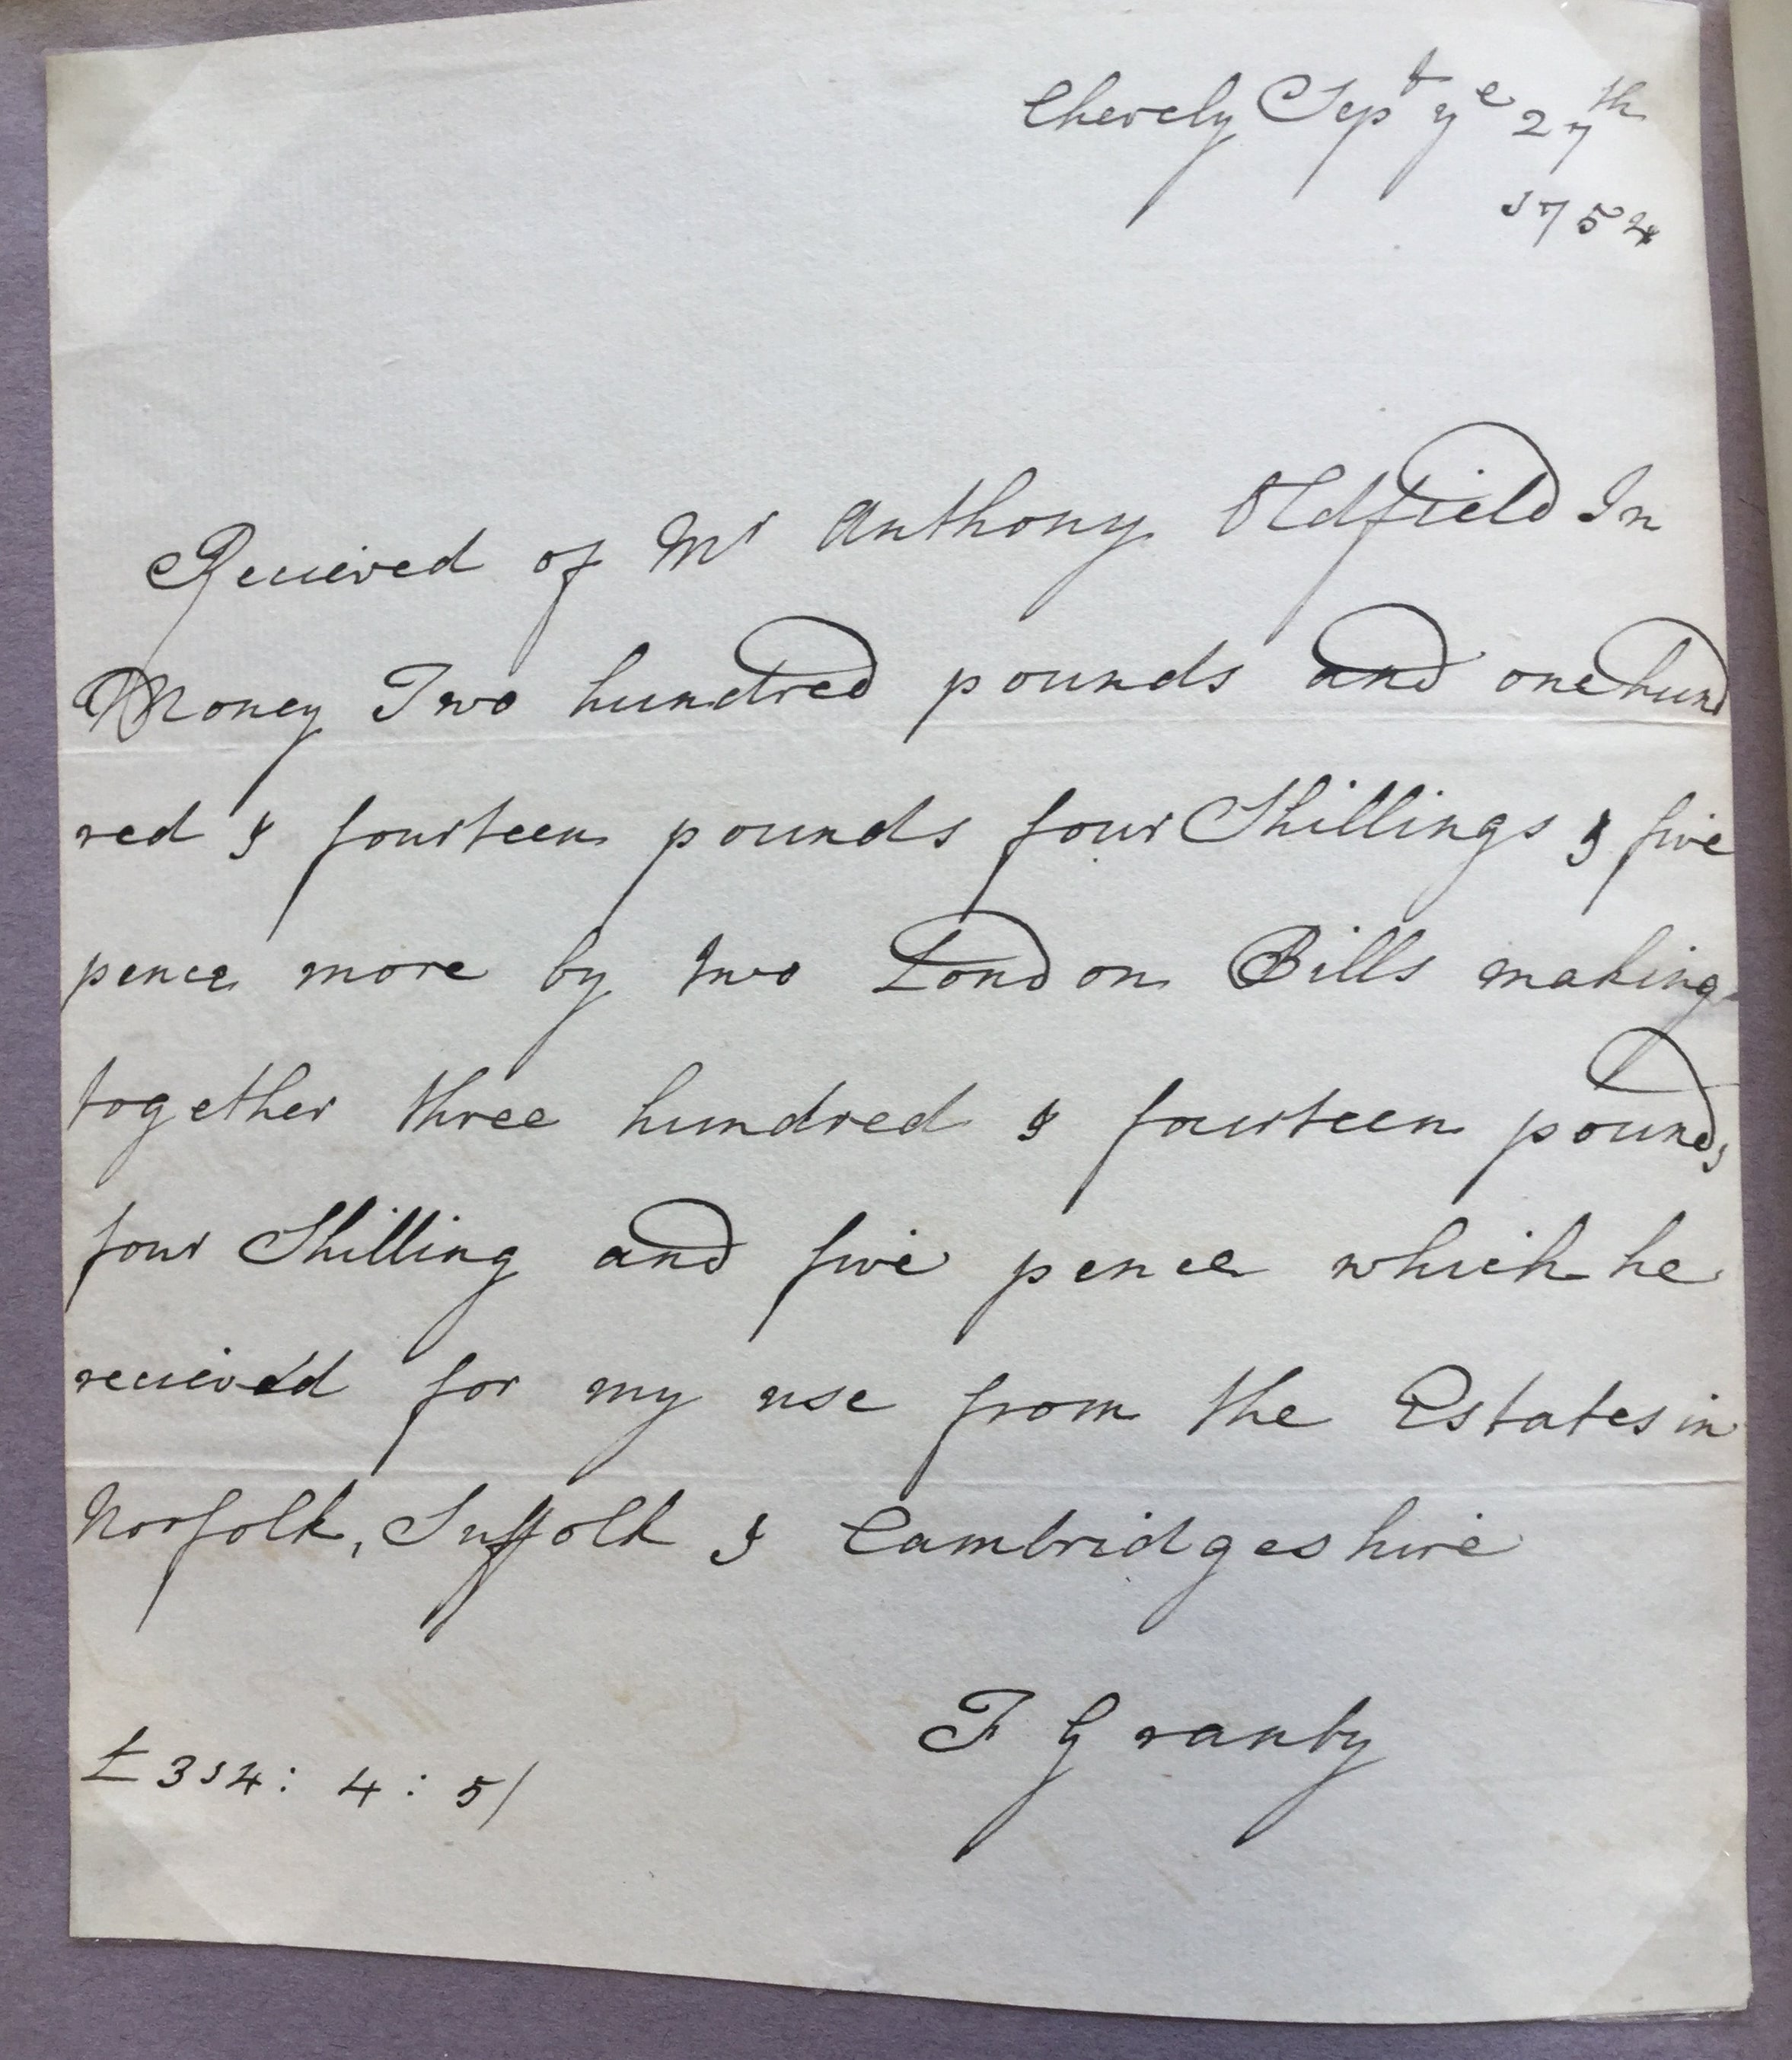 Cheverly Sept ye 27th
1754
Recieved of Mr Anthony Oldfield In
Money Two hundred pounds and one hund
red & fourteen pounds four Shillings & five
pence more by two London Bills making
together three hundred & fourteen pounds
four Shilling and five pence which he
recieved for my use from the Estates in
Norfolk, Suffolk & Cambridgeshire
F Granby
£314: 4: 5/